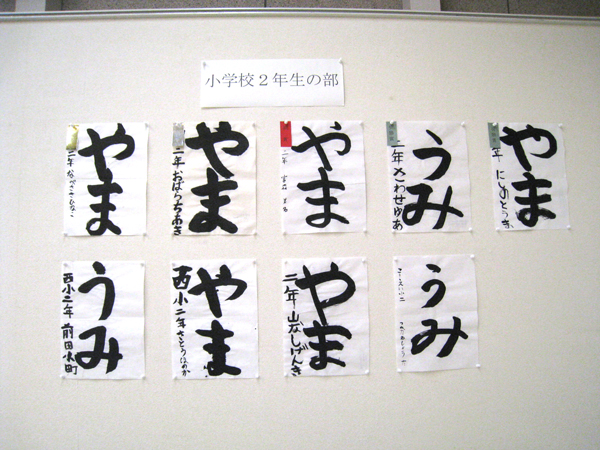 小学校2年生の部
やま
二年
やま
二年 おばらちあき
やま
二年
うみ
二年 さわせゆあ
やま
年 にしのとうき
うみ
西小二年 前田小町
やま
西小二年さとうほのか
やま
二年 山なしげんき
うみ